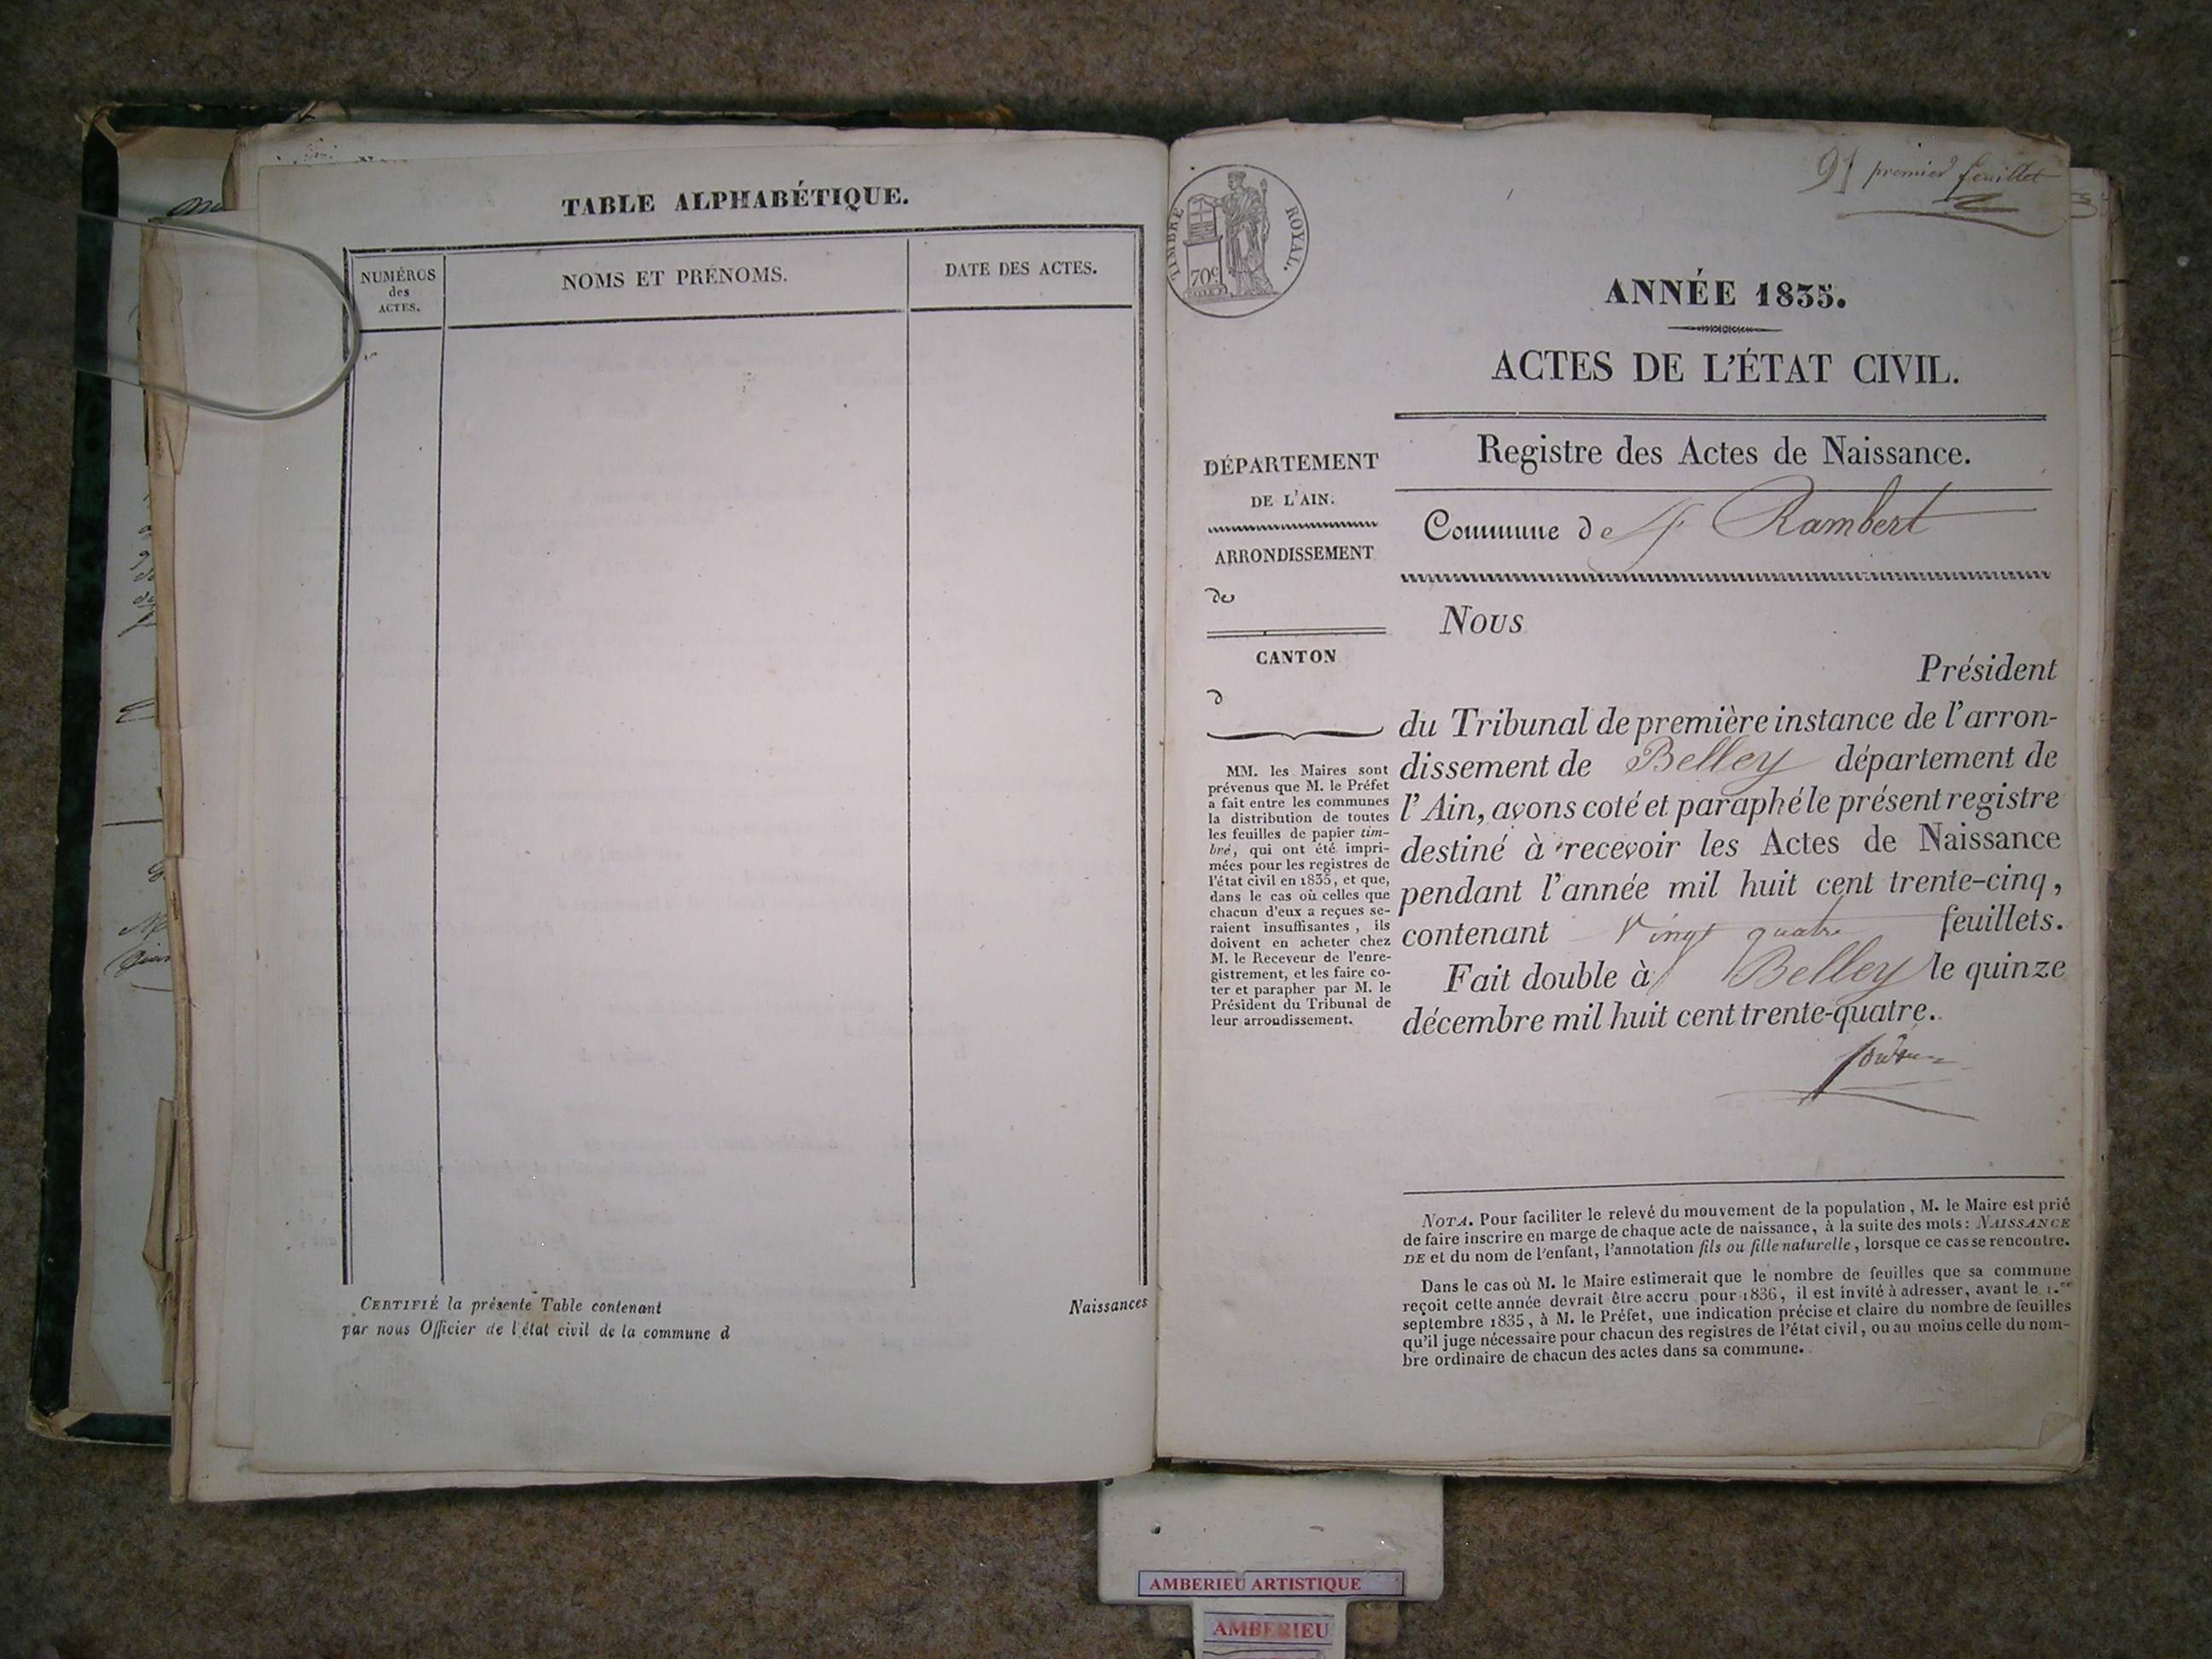 TABLE ALPHABÉTIQUE.
NUMÉROS
des
ACTES.
NOMS ET PRÉNOMS.
DATE DES ACTES.
CERTIFIÉ la présente Table contenant Naissances
par nous Officier de l'état civil de la commune d
TIMBRE ROYAL.
70c
91 premier feuillet
ANNÉE 1835.
ACTES DE L'ÉTAT CIVIL.
Registre des Actes de Naissance.
Commune de St Rambert
DÉPARTEMENT
DE L'AIN.
ARRONDISSEMENT
de
CANTON
d
MM. les Maires sont
prévenus que M. le Préfet
a fait entre les communes
la distribution de toutes
les feuilles de papier tim-
bré, qui ont été impri-
mées pour les registres de
l'état civil en 1835, et que,
dans le cas où celles que
chacun d'eux a reçues se-
raient insuffisantes, ils
doivent en acheter chez
M. le Receveur de l'enre-
gistrement, et les faire co-
ter et parapher par M. le
Président du Tribunal de
leur arrondissement.
Nous
Président
du Tribunal de première instance de l'arron-
dissement de Belley département de
l'Ain, avons coté et paraphé le présent registre
destiné à recevoir les Actes de Naissance
pendant l'année mil huit cent trente-cinq,
contenant Vingt quatre feuillets.
Fait double à Belley le quinze
décembre mil huit cent trente-quatre.
NOTA. Pour faciliter le relevé du mouvement de la population, M. le Maire est prié
de faire inscrire en marge de chaque acte de naissance, à la suite des mots: NAISSANCE
DE et du nom de l'enfant, l'annotation fils ou fille naturelle, lorsque ce cas se rencontre.
Dans le cas où M. le Maire estimerait que le nombre de feuilles que sa commune
reçoit cette année devrait être accru pour 1836, il est invité à adresser, avant le 1.er
septembre 1835, à M. le Préfet, une indication précise et claire du nombre de feuilles
qu'il juge nécessaire pour chacun des registres de l'état civil, ou au moins celle du nom-
bre ordinaire de chacun des actes dans sa commune.
AMBERIEU ARTISTIQUE
AMBERIEU